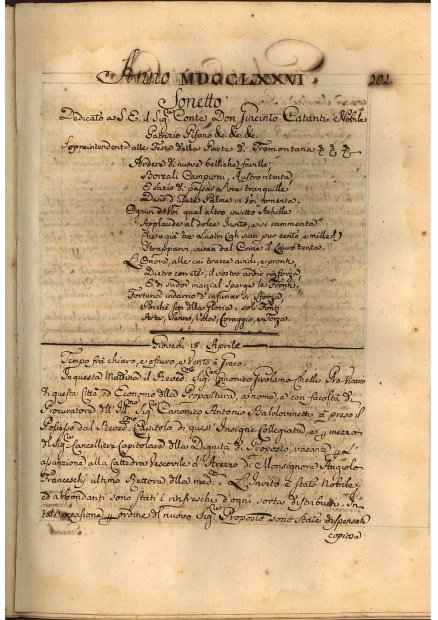 Anno MDCCLXXXVI 202
Sonetto
Dedicato a S. E. il Sig.r Conte Don Giacinto Catanti Nobile
Patrizio Pisano &c. &c. &c.
Sopreintendente alle Fiere della Parte di Tramontana
Ardere di nuove belliche faville
Boreali Campioni, Austro
E d'ozio di passar l'ore tranquille
in Voi fomenta.
Ognun di Voi qual altro invitto Achille
Applaude al dolce Invito, e si rammenta
Che già tre Lustri cento, e mille
Strapparvi invan dal Crine il Lauro tenta.
L'Onore, alle cui tracce avidi, e pronti
Dietro correte, il vostro ardir rinforza
E di sudor marzial sparge le Fronti.
Fortuna indarno d'infuriar si sforza
Perchè son della Gloria i soli Fonti
Arte, Senno, Valor, Coraggio, e Forza.
Giovedì 18. Aprile
Tempo frà chiaro, e oscuro, e Vento a Greco.
In questa Mattina il Rev.do Sig.r Canonico Girolamo
di questa Città, ed Economo della Propositura, a nome, e con facoltà di
Procuratore dell' Ill.mo Sig.r Canonico Antonio Baldovinetti à preso il
Possesso dal Rev.do Capitolo di quest' Insigne Collegiata, e p mezzo
del Sig.r Cancelliere Capitolare della Dignità di Proposto, vacante p l'
assunzione alla Cattedra Vescovile d'Arezzo di Monsignore Angiolo
Franceschi ultimo Rettore della med.a L'Invito è stato Nobile,
ed abbondanti sono stati i rinfreschi d'ogni sorta distribuiti. In
tale occasione p ordine del nuovo Sig.r Proposto sono state dispensate
copiosa